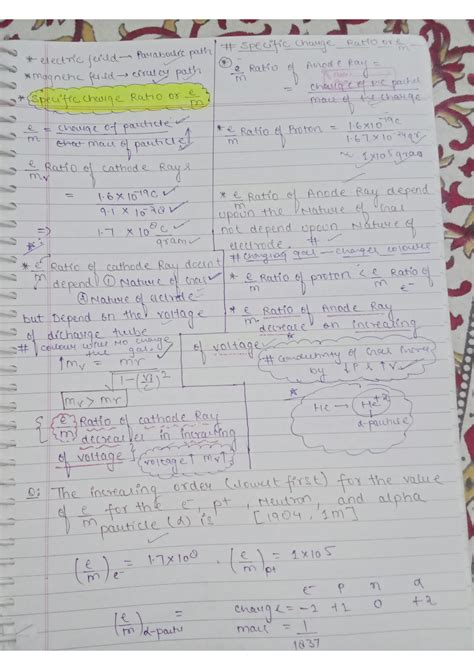 * electric feild → Parabolic path
* magnetic feild → circular path
* Specific charge Ratio or e/m
e/m = charge of particle
mass of particle
e/m Ratio of cathode Ray
= 1.6 × 10⁻¹⁹C
9.1 × 10⁻²⁸
⇒ 1.7 × 10⁸ C
gram
* e/m Ratio of cathode Ray doesnt
depend ① Nature of Gas
② Nature of
but Depend on the voltage
of dicharge tube
# colour
the gas.
mv = mr
√1-(v/c)²
mv > mr
{ e/m Ratio of cathode Ray
decreases in
of voltage
voltage ↑ mv↑
# Specific charge Ratio or e/m
* e/m Ratio of Anode Ray =
charge of the
mass of the charge
* e/m Ratio of Proton = 1.6×10⁻¹⁹
1.67×10⁻²⁴
≈ 1×10⁵
* e/m Ratio of Anode Ray depend
upoun the Nature of Gas
not depend upoun Nature of
electrode. #
# Changing gas → changes colour
* e/m Ratio of proton < e/m Ratio of
e⁻
* e/m Ratio of Anode Ray
decrease on increasing
of voltage
# conductivity of Gas
by ↓P & ↑V
*
He → He⁺²
Q: The increasing order (lowest first) for the value
of e/m for the e⁻, p⁺, Neutron, and alpha
particle (α) is [1984, 1m]
(e/m)e⁻ = 1.7×10⁸ , (e/m)p⁺ = 1×10⁵
e⁻ p n α
(e/m) = charge = -1 +1 0 +2
mass = 1
1837